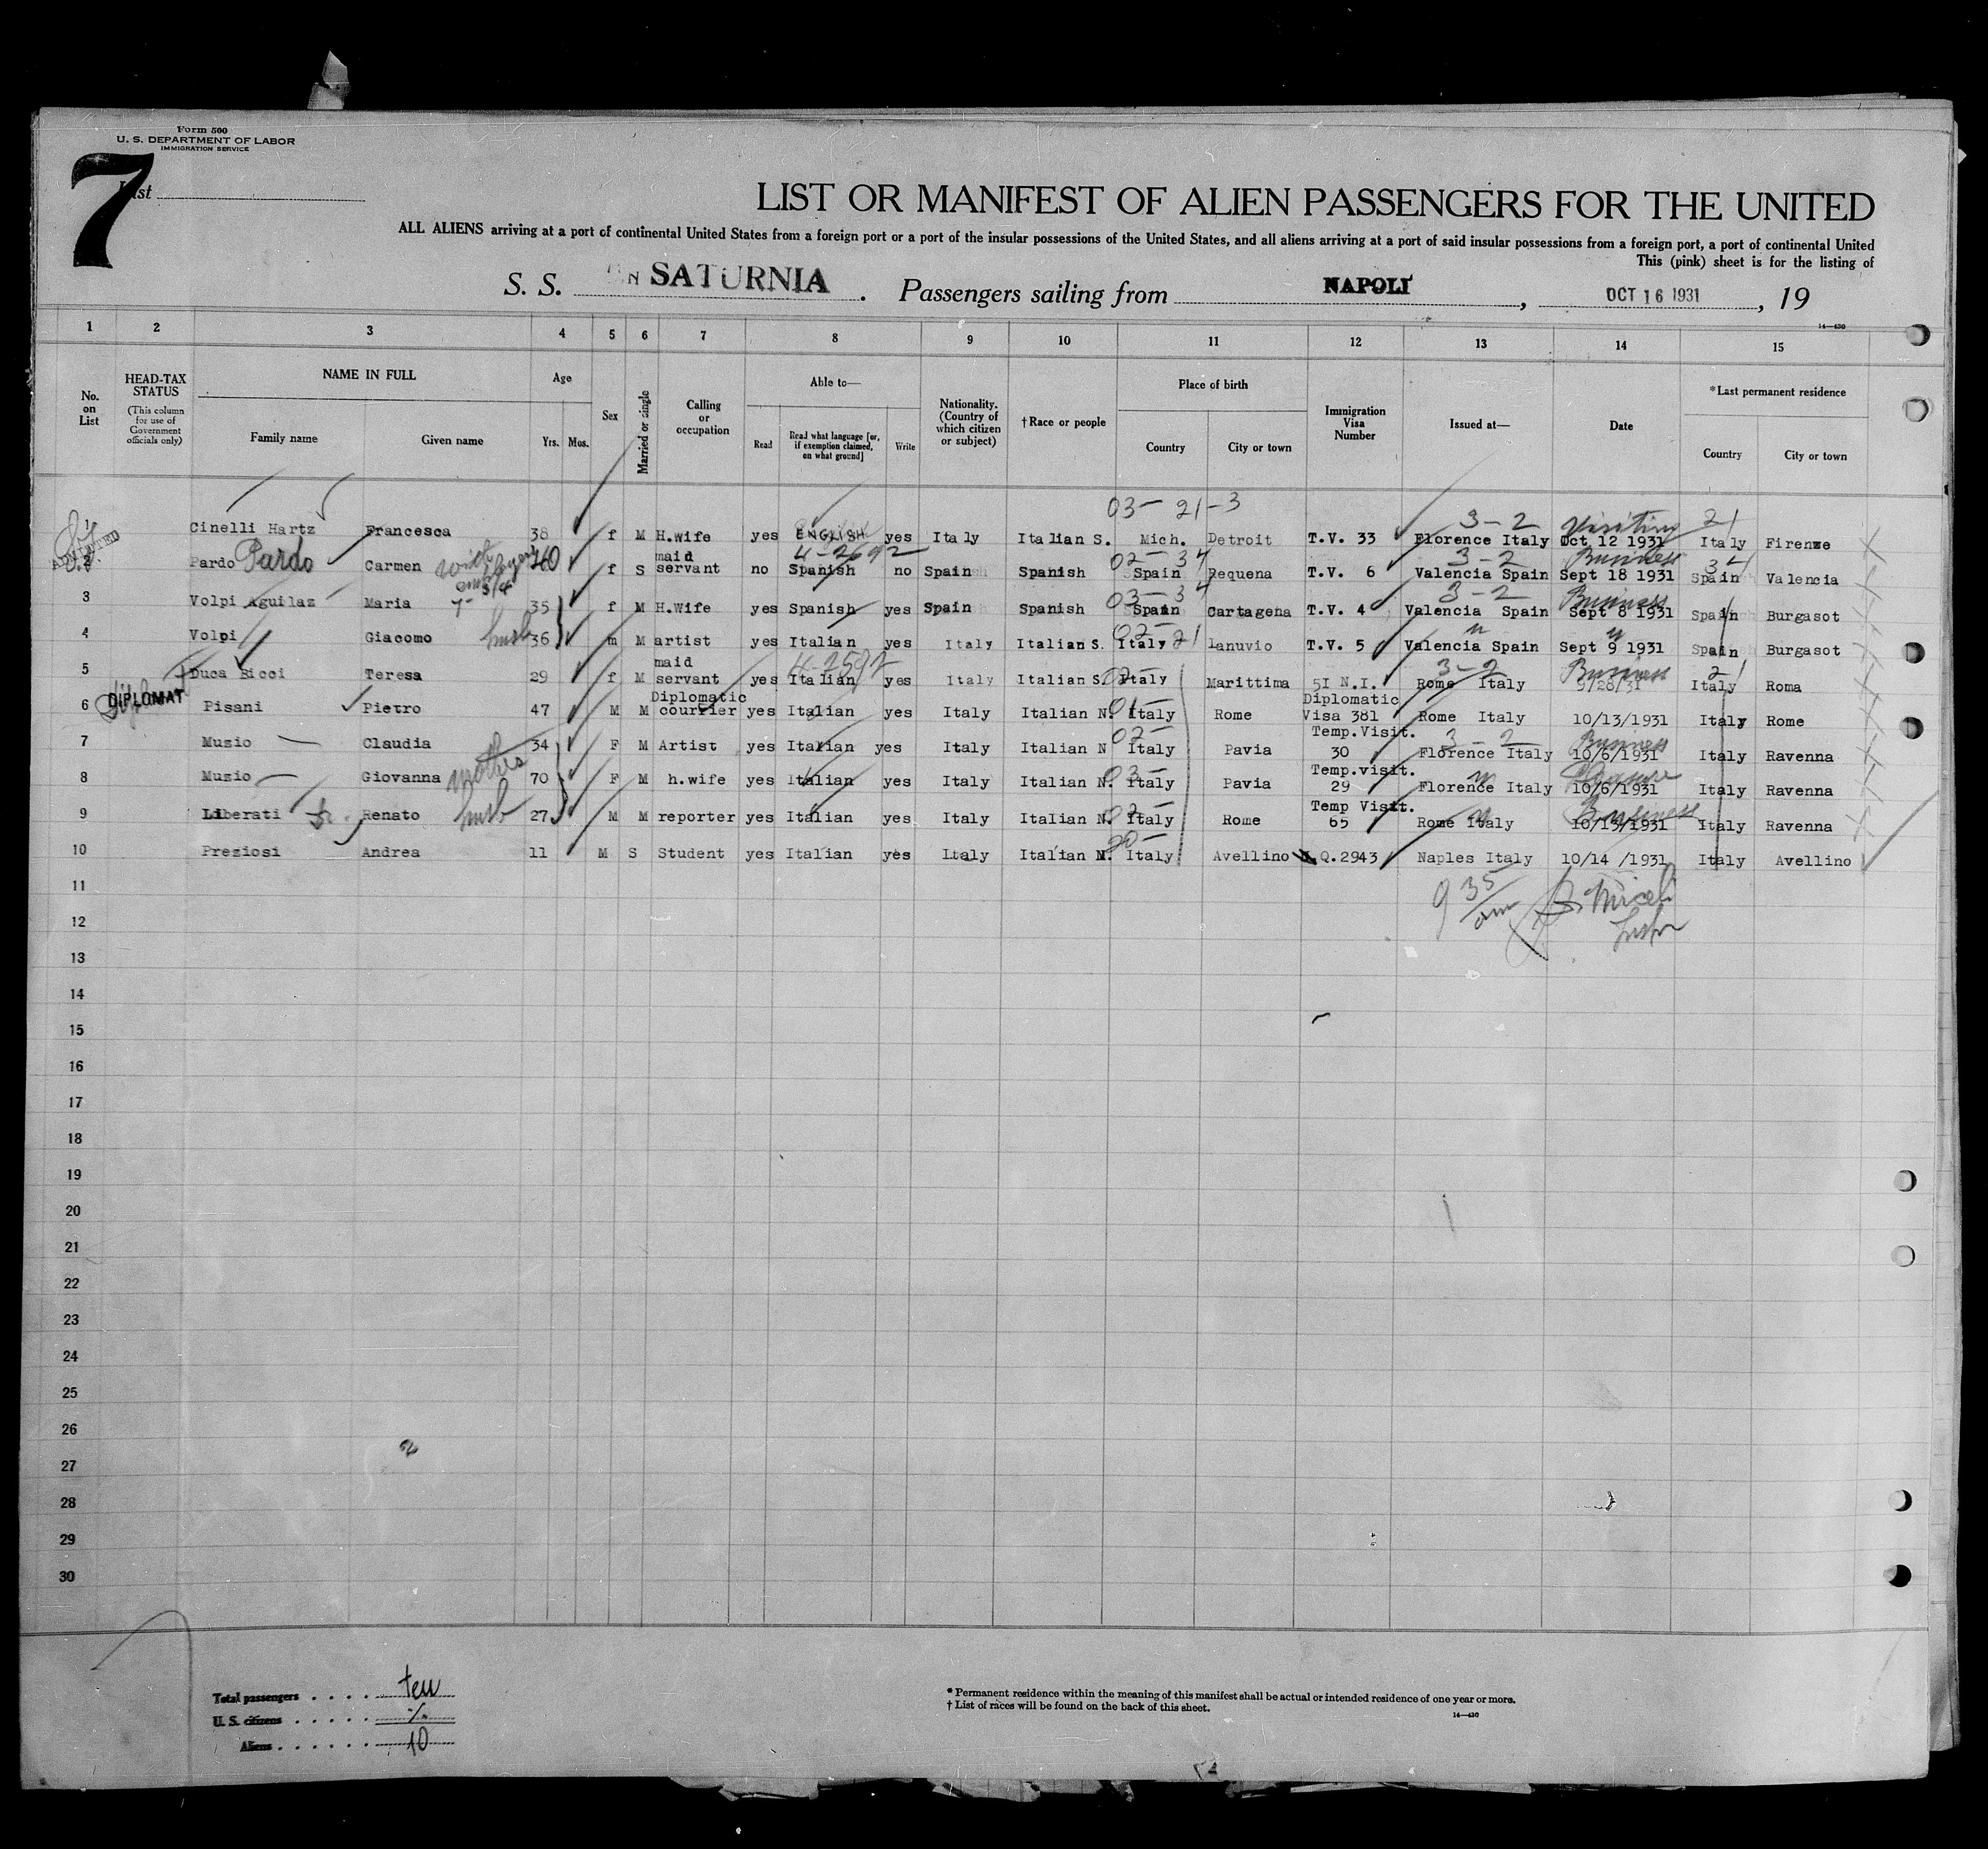 Form 500
U. S. DEPARTMENT OF LABOR
IMMIGRATION SERVICE
7
List
LIST OR MANIFEST OF ALIEN PASSENGERS FOR THE UNITED
ALL ALIENS arriving at a port of continental United States from a foreign port or a port of the insular possessions of the United States, and all aliens arriving at a port of said insular possessions from a foreign port, a port of continental United
This (pink) sheet is for the listing of
S. S. SATURNIA. Passengers sailing from NAPOLI, OCT 16 1931, 19
14—430
1 2 3 4 5 6 7 8 9 10 11 12 13 14 15
No. on List
HEAD-TAX STATUS
(This column for use of Government officials only)
NAME IN FULL
Family name Given name
Age
Yrs. Mos.
Sex
Married or single
Calling or occupation
Able to—
Read
Read what language [or, if exemption claimed, on what ground]
Write
Nationality. (Country of which citizen or subject)
† Race or people
Place of birth
Country City or town
Immigration Visa Number
Issued at—
Date
* Last permanent residence
Country City or town
03— 21—3
3—2 Visiting 21
ADMITTED
1 Cinelli Hartz Francesca 38 f M H.wife yes ENGLISH yes Italy Italian S. Mich. Detroit T.V. 33 Florence Italy Oct 12 1931 Italy Firenze
with employer 4-2692 02— 34 3—2 Business 34
2 Pardo Pardo Carmen 40 f S maid servant no Spanish no Spain Spanish Spain Requena T.V. 6 Valencia Spain Sept 18 1931 Spain Valencia
03—34 3—2 Business
3 Volpi Aguilaz Maria 35 f M H.Wife yes Spanish yes Spain Spanish Spain Cartagena T.V. 4 Valencia Spain Sept 8 1931 Spain Burgasot
02— 21
4 Volpi Giacomo husb 36 m M artist yes Italian yes Italy Italian S. Italy Lanuvio T.V. 5 Valencia Spain Sept 9 1931 Spain Burgasot
4-2592 02— 3—2 Business 21
5 Duca Ricci Teresa 29 f M maid servant yes Italian yes Italy Italian S. Italy Marittima 51 N.I. Rome Italy 9/28/31 Italy Roma
DIPLOMAT
01—
6 Pisani Pietro 47 M M Diplomatic courrier yes Italian yes Italy Italian N. Italy Rome Diplomatic Visa 381 Rome Italy 10/13/1931 Italy Rome
02— 3—2 Business
7 Muzio Claudia 34 F M Artist yes Italian yes Italy Italian N Italy Pavia Temp.Visit. 30 Florence Italy 10/6/1931 Italy Ravenna
03— Pleasure
8 Muzio Giovanna mother 70 F M h.wife yes Italian yes Italy Italian N. Italy Pavia Temp.visit. 29 Florence Italy 10/6/1931 Italy Ravenna
02— Business
9 Liberati Renato husb 27 M M reporter yes Italian yes Italy Italian N. Italy Rome Temp Visit. 65 Rome Italy 10/13/1931 Italy Ravenna
20—
10 Preziosi Andrea 11 M S Student yes Italian yes Italy Italian M. Italy Avellino Q.2943 Naples Italy 10/14 /1931 Italy Avellino
11
9 35/am
12
13
14
15
16
17
18
19
20
21
22
23
24
25
26
27
28
29
30
Total passengers . . . . ten
U. S. citizens . . . . .
Aliens . . . . . . 10
* Permanent residence within the meaning of this manifest shall be actual or intended residence of one year or more.
† List of races will be found on the back of this sheet.
14—430